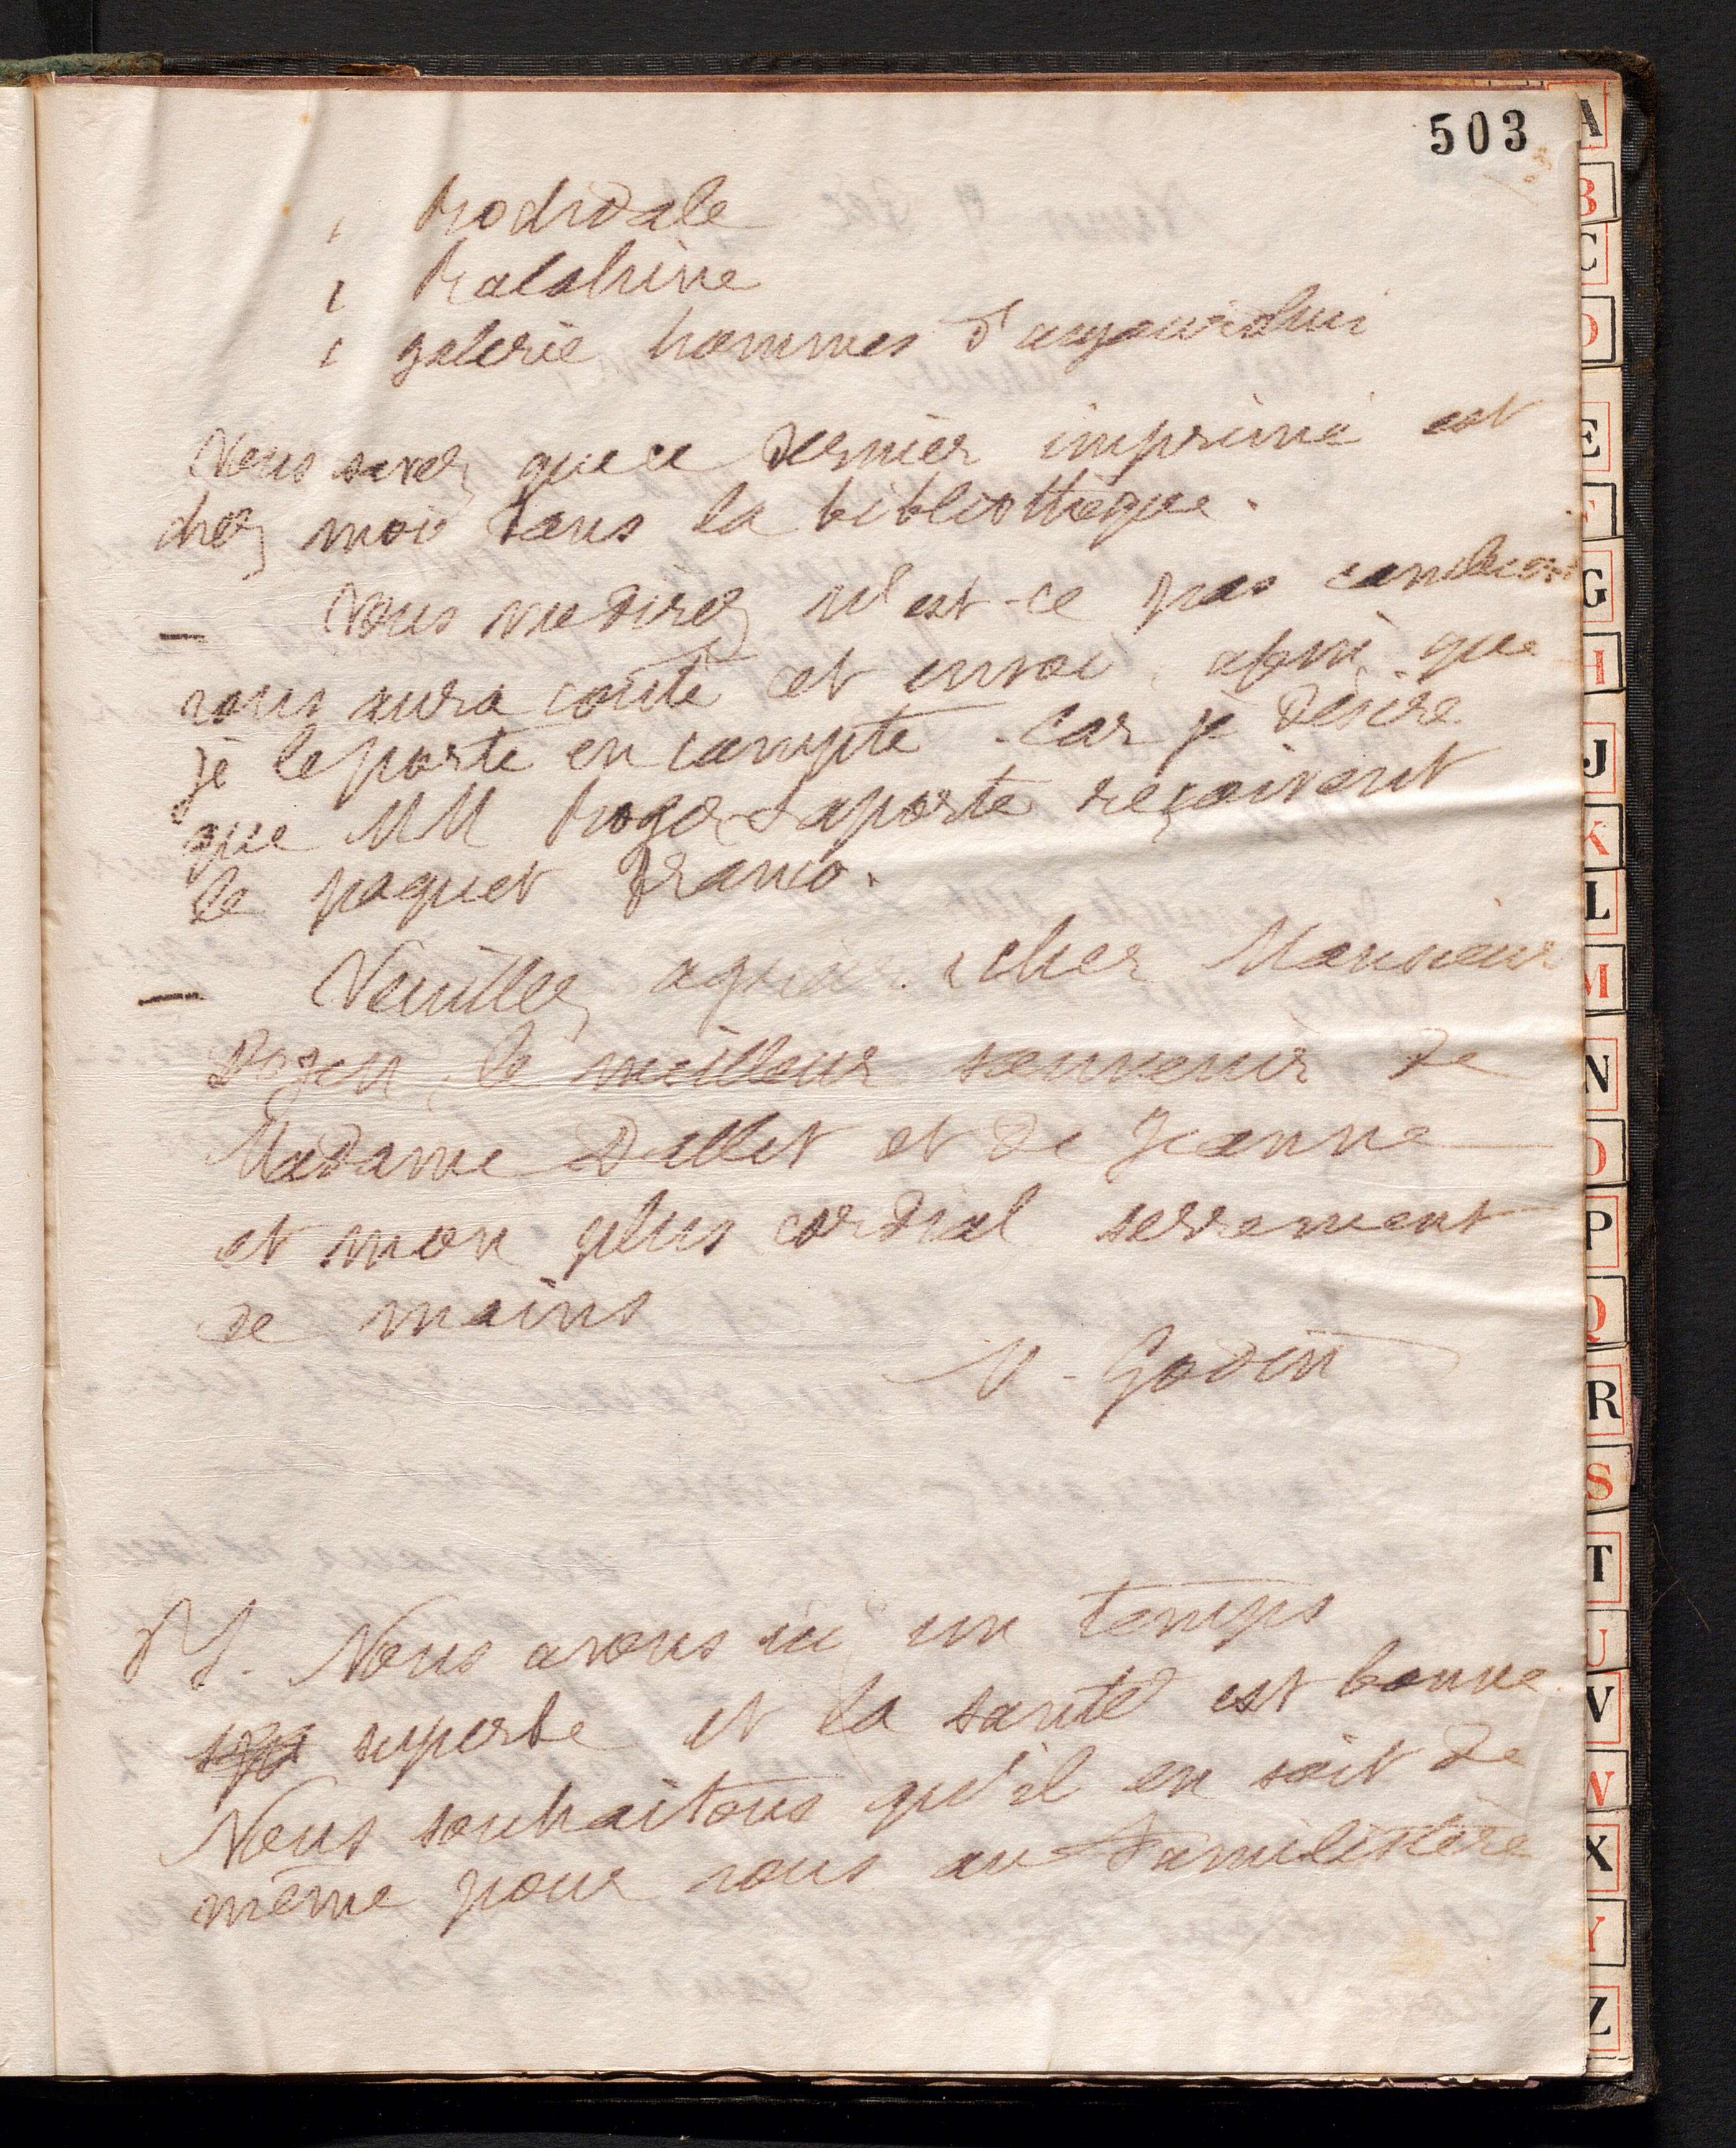 503
1 Rochdale
1 Ralahine
1 galerie hommes d'aujourd'hui
Vous savez que ce dernier imprimé est
chez moi dans la bibliothèque.
— Vous me direz n'est-ce pas combien
vous aura coûté cet envoi, afin que
je le porte en compte. Car je désire
que MM Roger-Laporte reçoivent
le paquet franco.
— Veuillez agréer, cher Monsieur
le meilleur souvenir de
Madame Dallet et de Jeanne
et mon plus cordial serrement
de mains
M. Godin
PS. Nous avons ici un temps
superbe et la santé est bonne.
Nous souhaitons qu'il en soit de
même pour vous au Familistère
A
B
C
D
E
F
G
H
J
K
L
M
N
O
P
Q
R
S
T
U
V
W
X
Y
Z